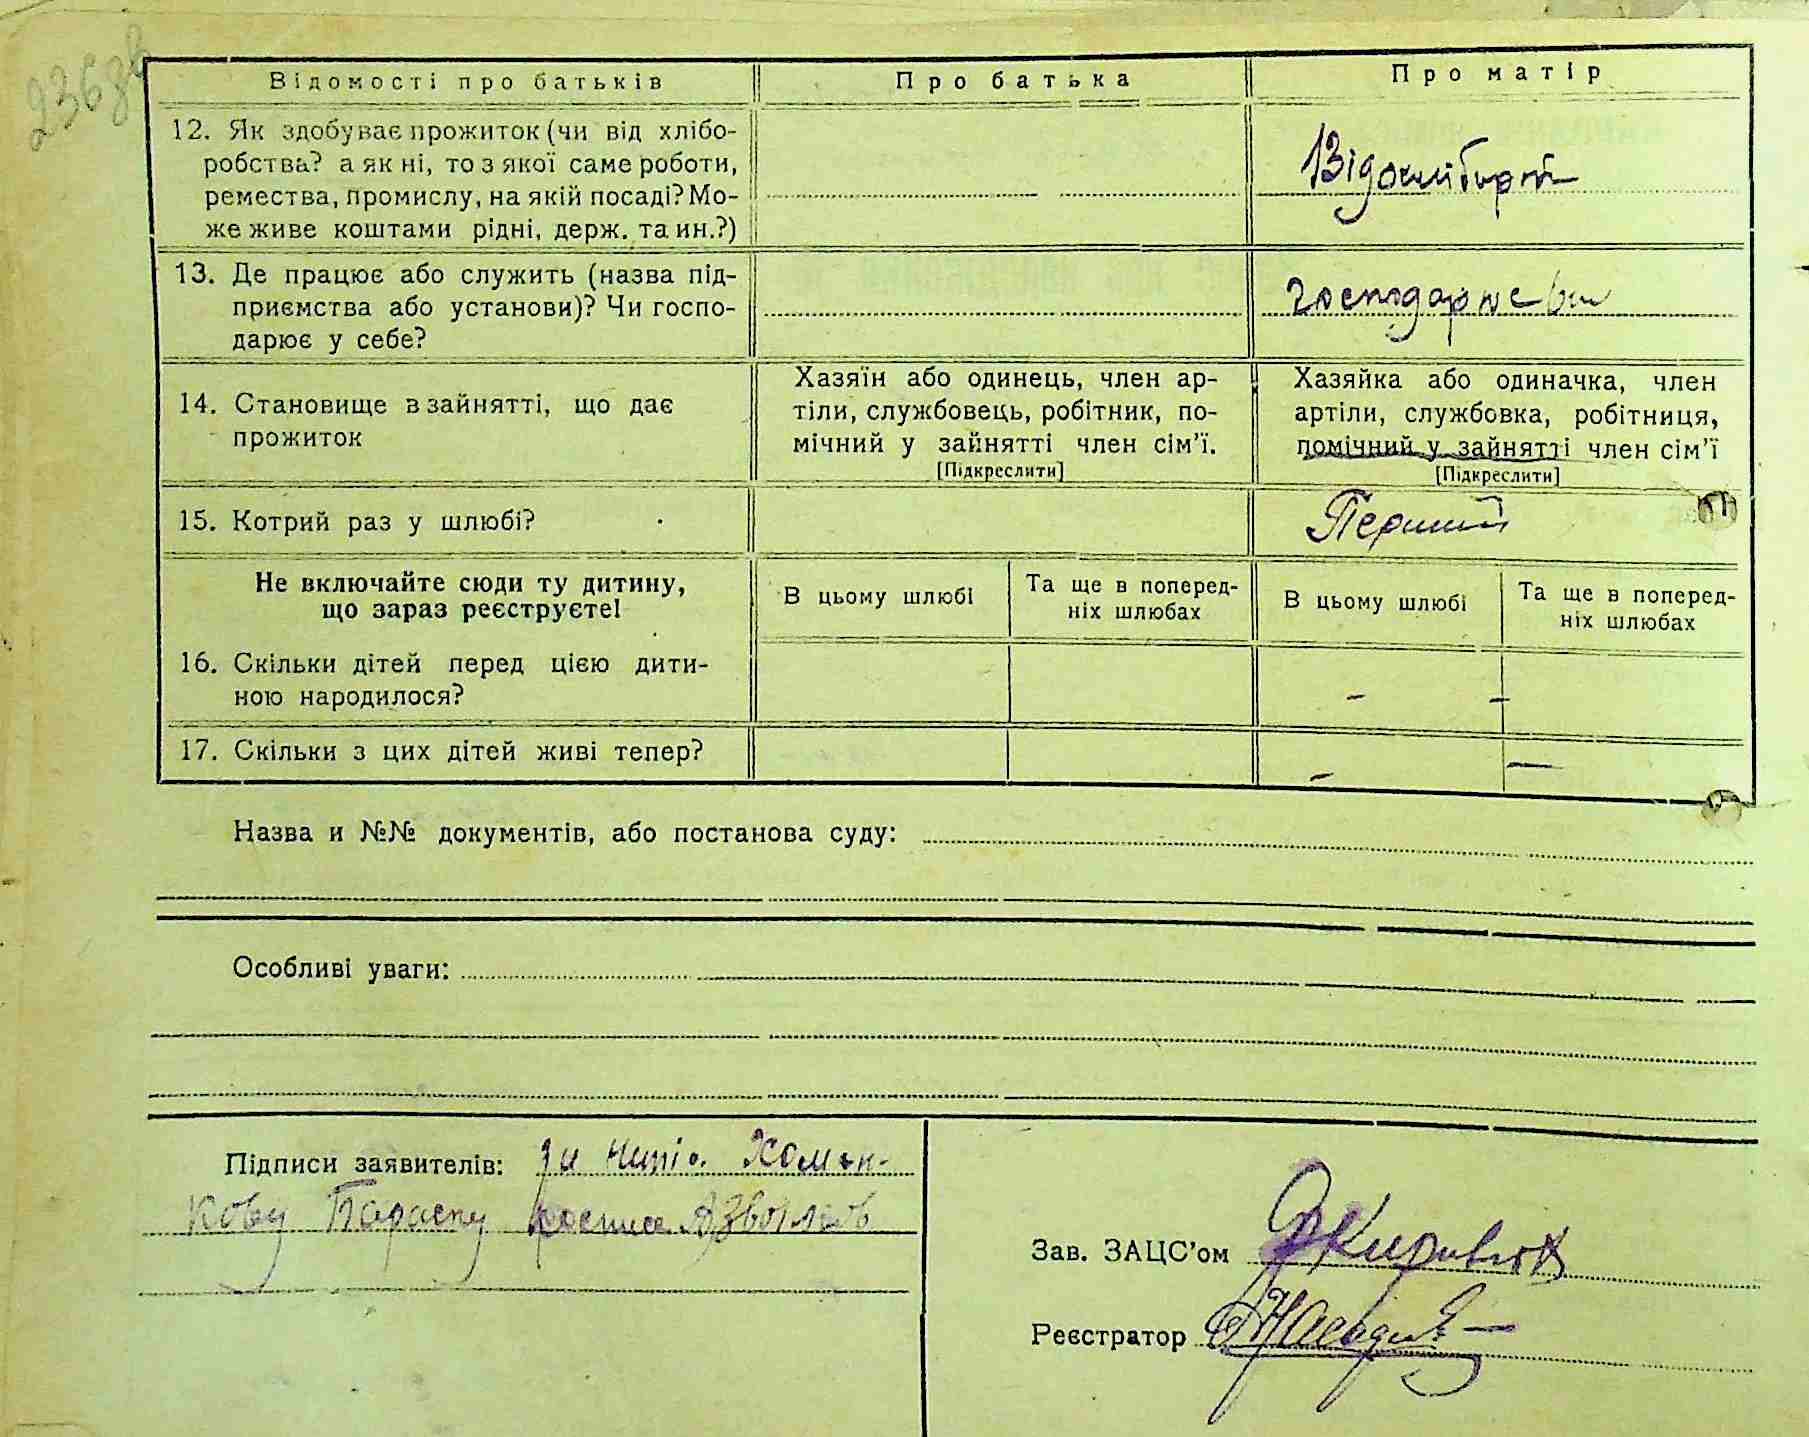 236зв
Відомості про батьків
Про батька
Про матір
12. Як здобуває прожиток (чи від хлібо-
робства? а як ні, то з якої саме роботи,
ремества, промислу, на якій посаді? Мо-
же живе коштами рідні, держ. та ин.?)
13. Де працює або служить (назва під-
приємства або установи)? Чи госпо-
дарює у себе?
14. Становище в зайнятті, що дає
прожиток
Хазяїн або одинець, член ар-
тіли, службовець, робітник, по-
мічний у зайнятті член сім’ї.
[Підкреслити]
Хазяйка або одиначка, член
артіли, службовка, робітниця,
помічний у зайнятті член сім’ї
[Підкреслити]
15. Котрий раз у шлюбі?
Перший
Не включайте сюди ту дитину,
що зараз реєструєте!
В цьому шлюбі
Та ще в поперед-
ніх шлюбах
В цьому шлюбі
Та ще в поперед-
ніх шлюбах
16. Скільки дітей перед цією дити-
ною народилося?
–
–
17. Скільки з цих дітей живі тепер?
–
—
Назва и №№ документів, або постанова суду:
Особливі уваги:
Підписи заявителів: за Хомен-
кову Параску
Зав. ЗАЦС’ом
Реєстратор